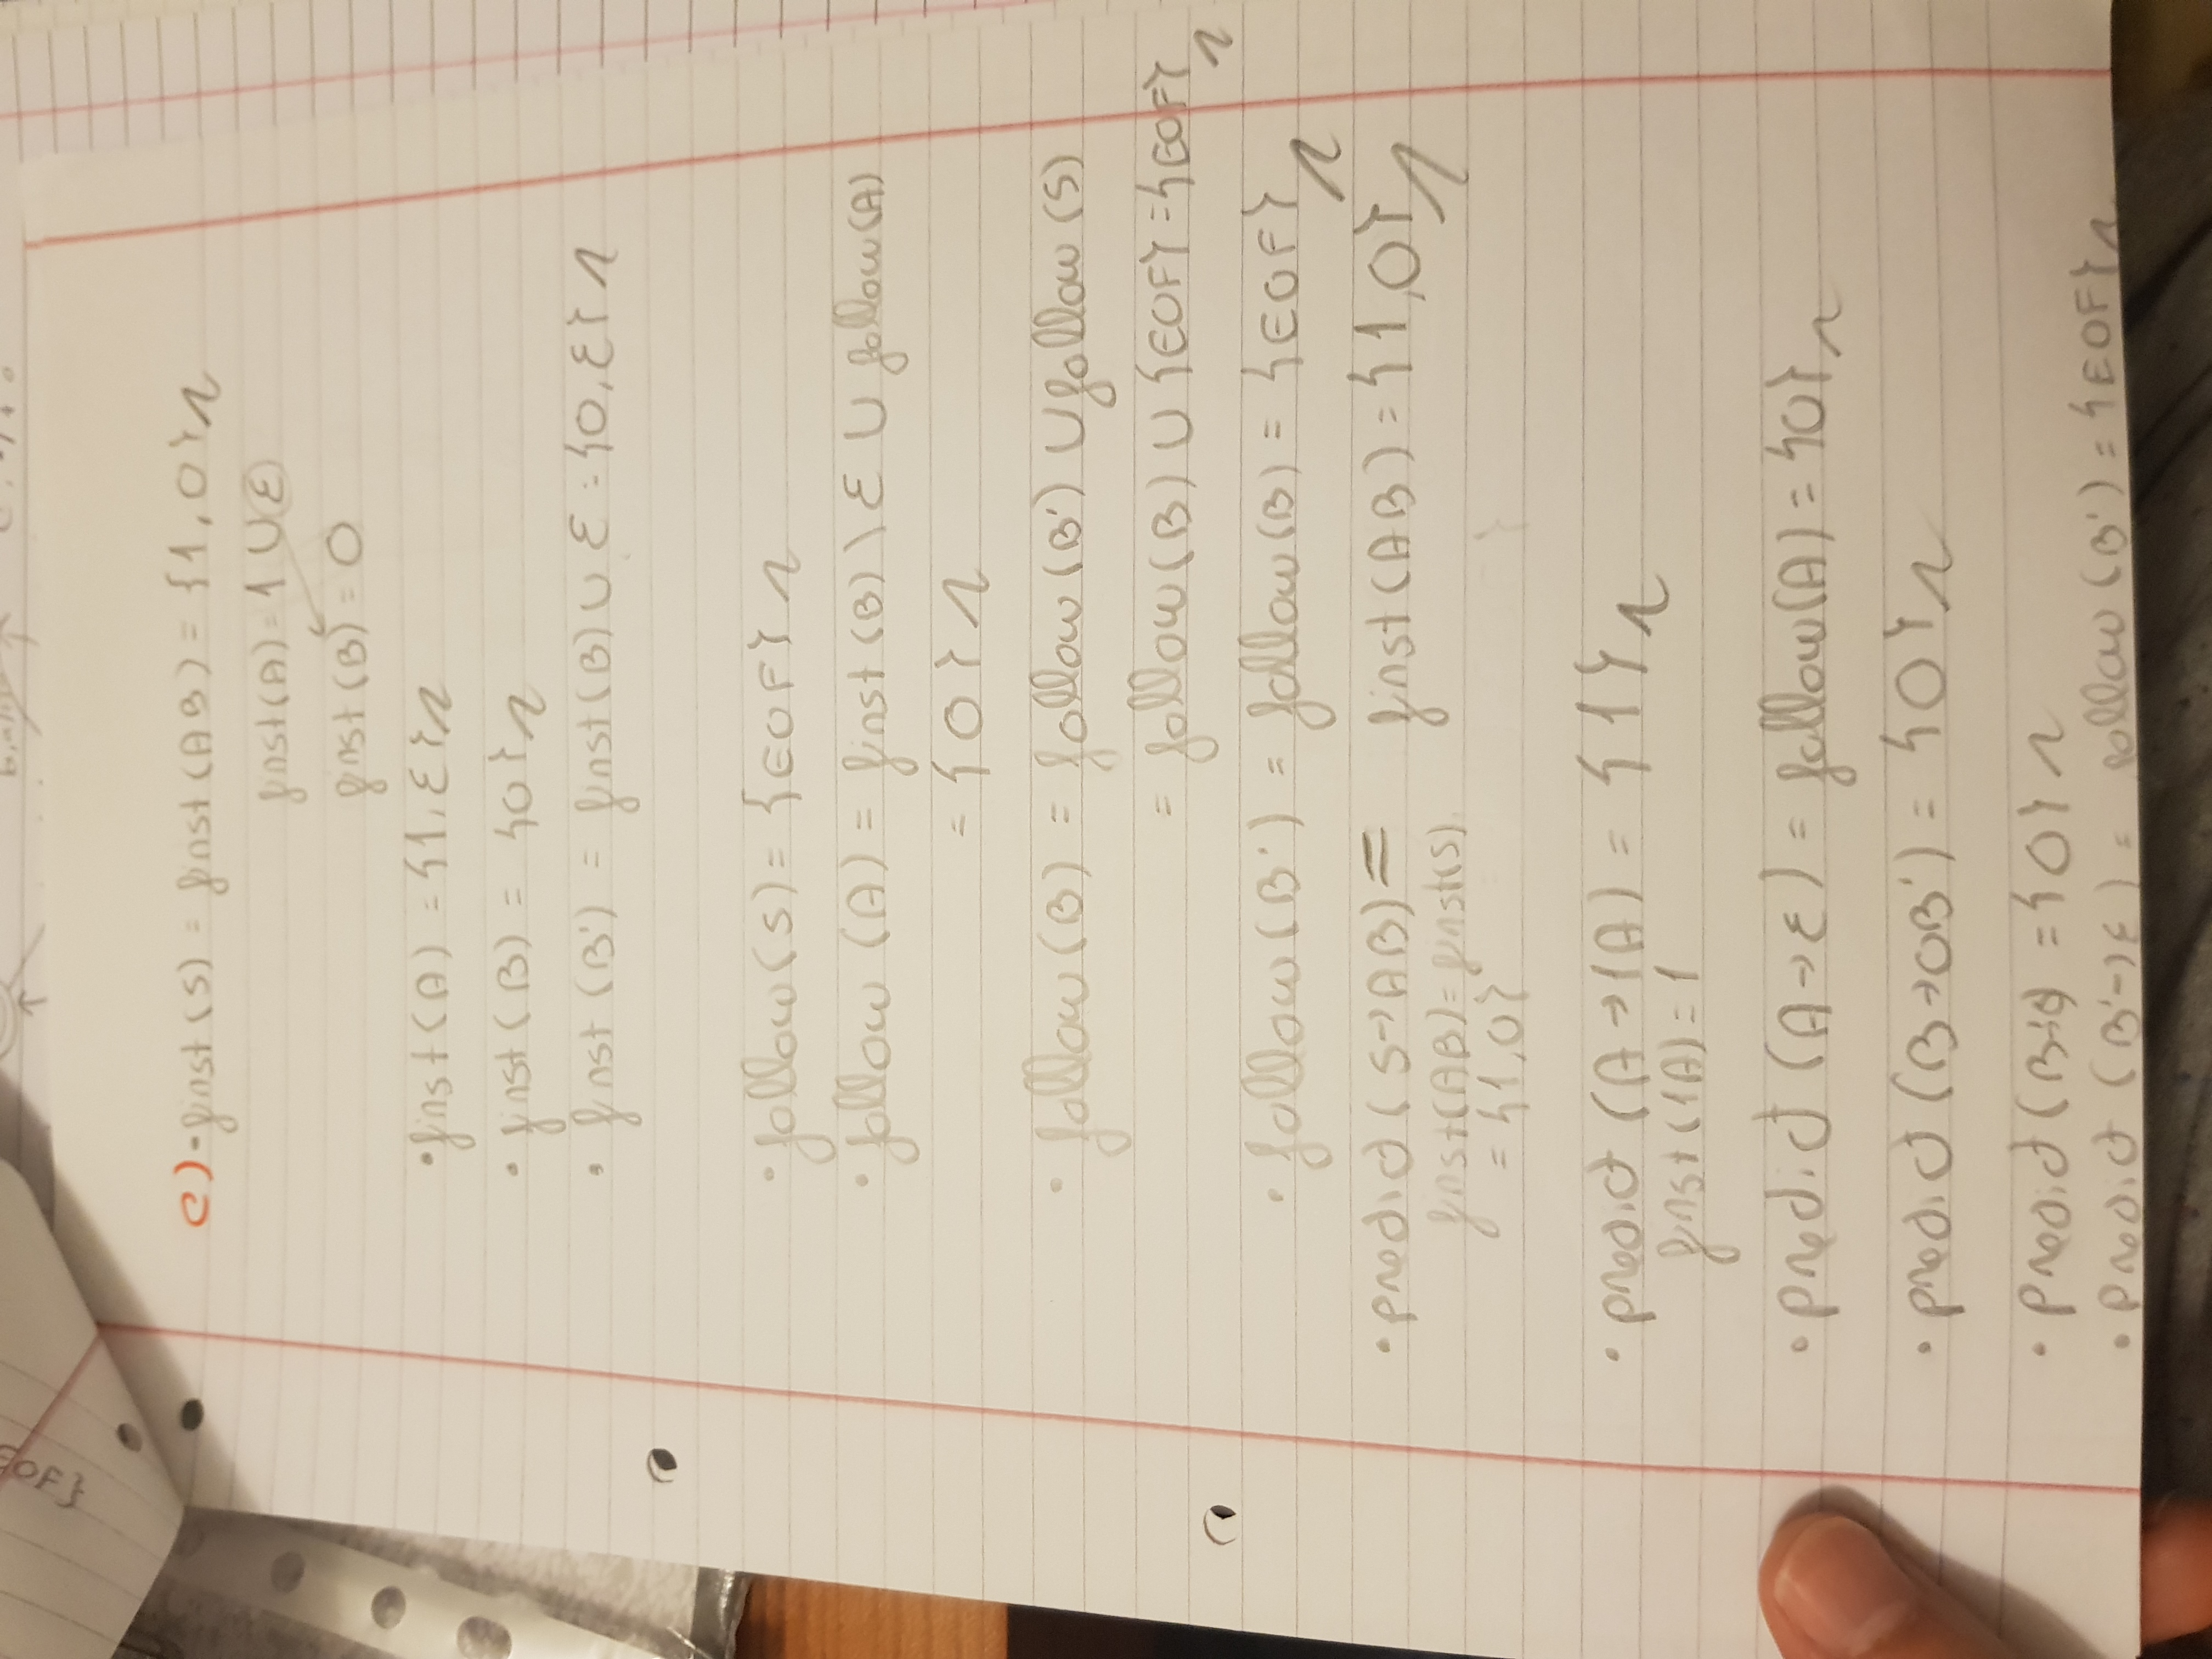 OF}
c) - first (S) = first (AB) = {1, 0}
first (A) = 1 ∪ ε
first (B) = 0
• first (A) = {1, ε}
• first (B) = {0}
• first (B') = first (B) ∪ ε = {0, ε}
• follow (S) = {EOF}
• follow (A) = first (B) \ ε ∪ follow (A)
= {0}
• follow (B) = follow (B') ∪ follow (S)
= follow (B) ∪ {EOF} = {EOF}
• follow (B') = follow (B) = {EOF}
• predict (S → AB) = first (AB) = {1, 0}
first (AB) = first (S)
= {1, 0}
• predict (A → 1A) = {1}
first (1A) = 1
• predict (A → ε) = follow (A) = {0}
• predict (B → 0B') = {0}
• predict = {0}
• predict (B' → ε) = follow (B') = {EOF}